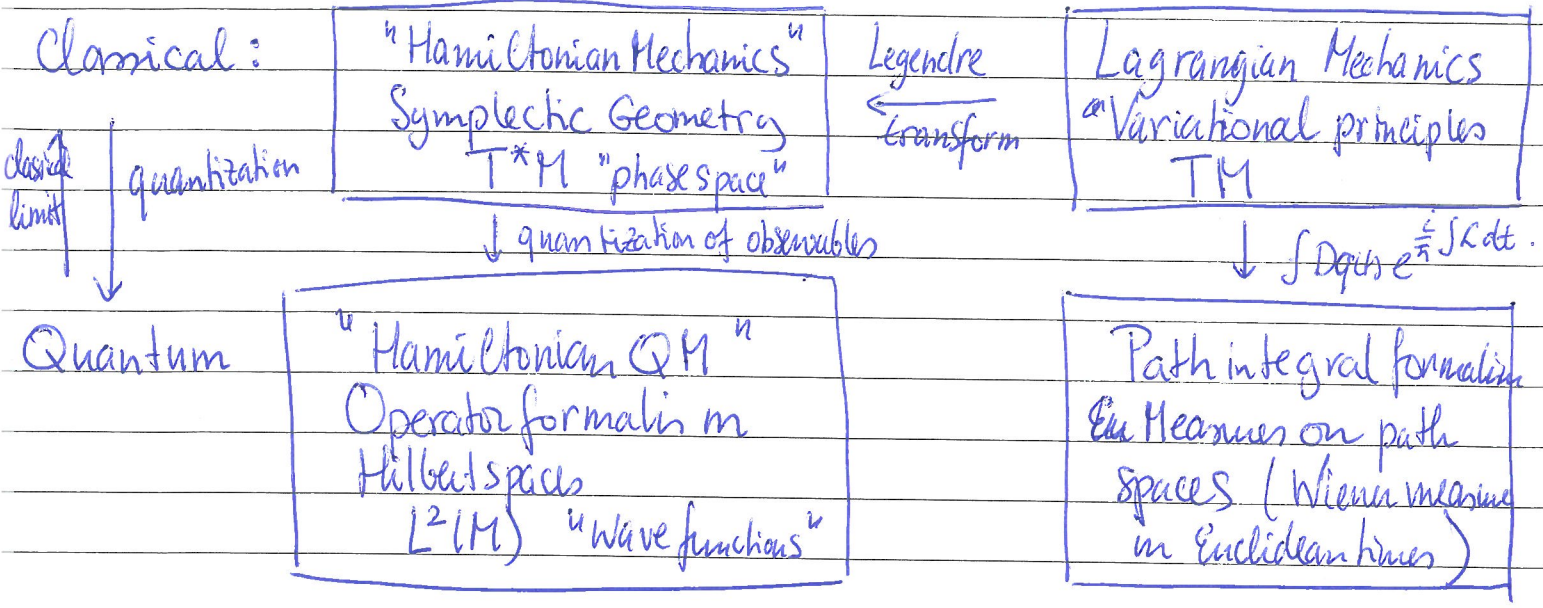 Classical:
"Hamiltonian Mechanics"
Symplectic Geometry
T*M "phase space"
Legendre
←
transform
Lagrangian Mechanics
"Variational principles
TM
classical
limit
quantization
↓ quantization of observables
↓ ∫Dq(t) e^{i/ħ ∫L dt}.
Quantum
"Hamiltonian QM"
Operator formalism
Hilbert spaces
L²(M) "Wave functions"
Path integral formalism
Measures on path
spaces (Wiener measure
in Euclidean times)